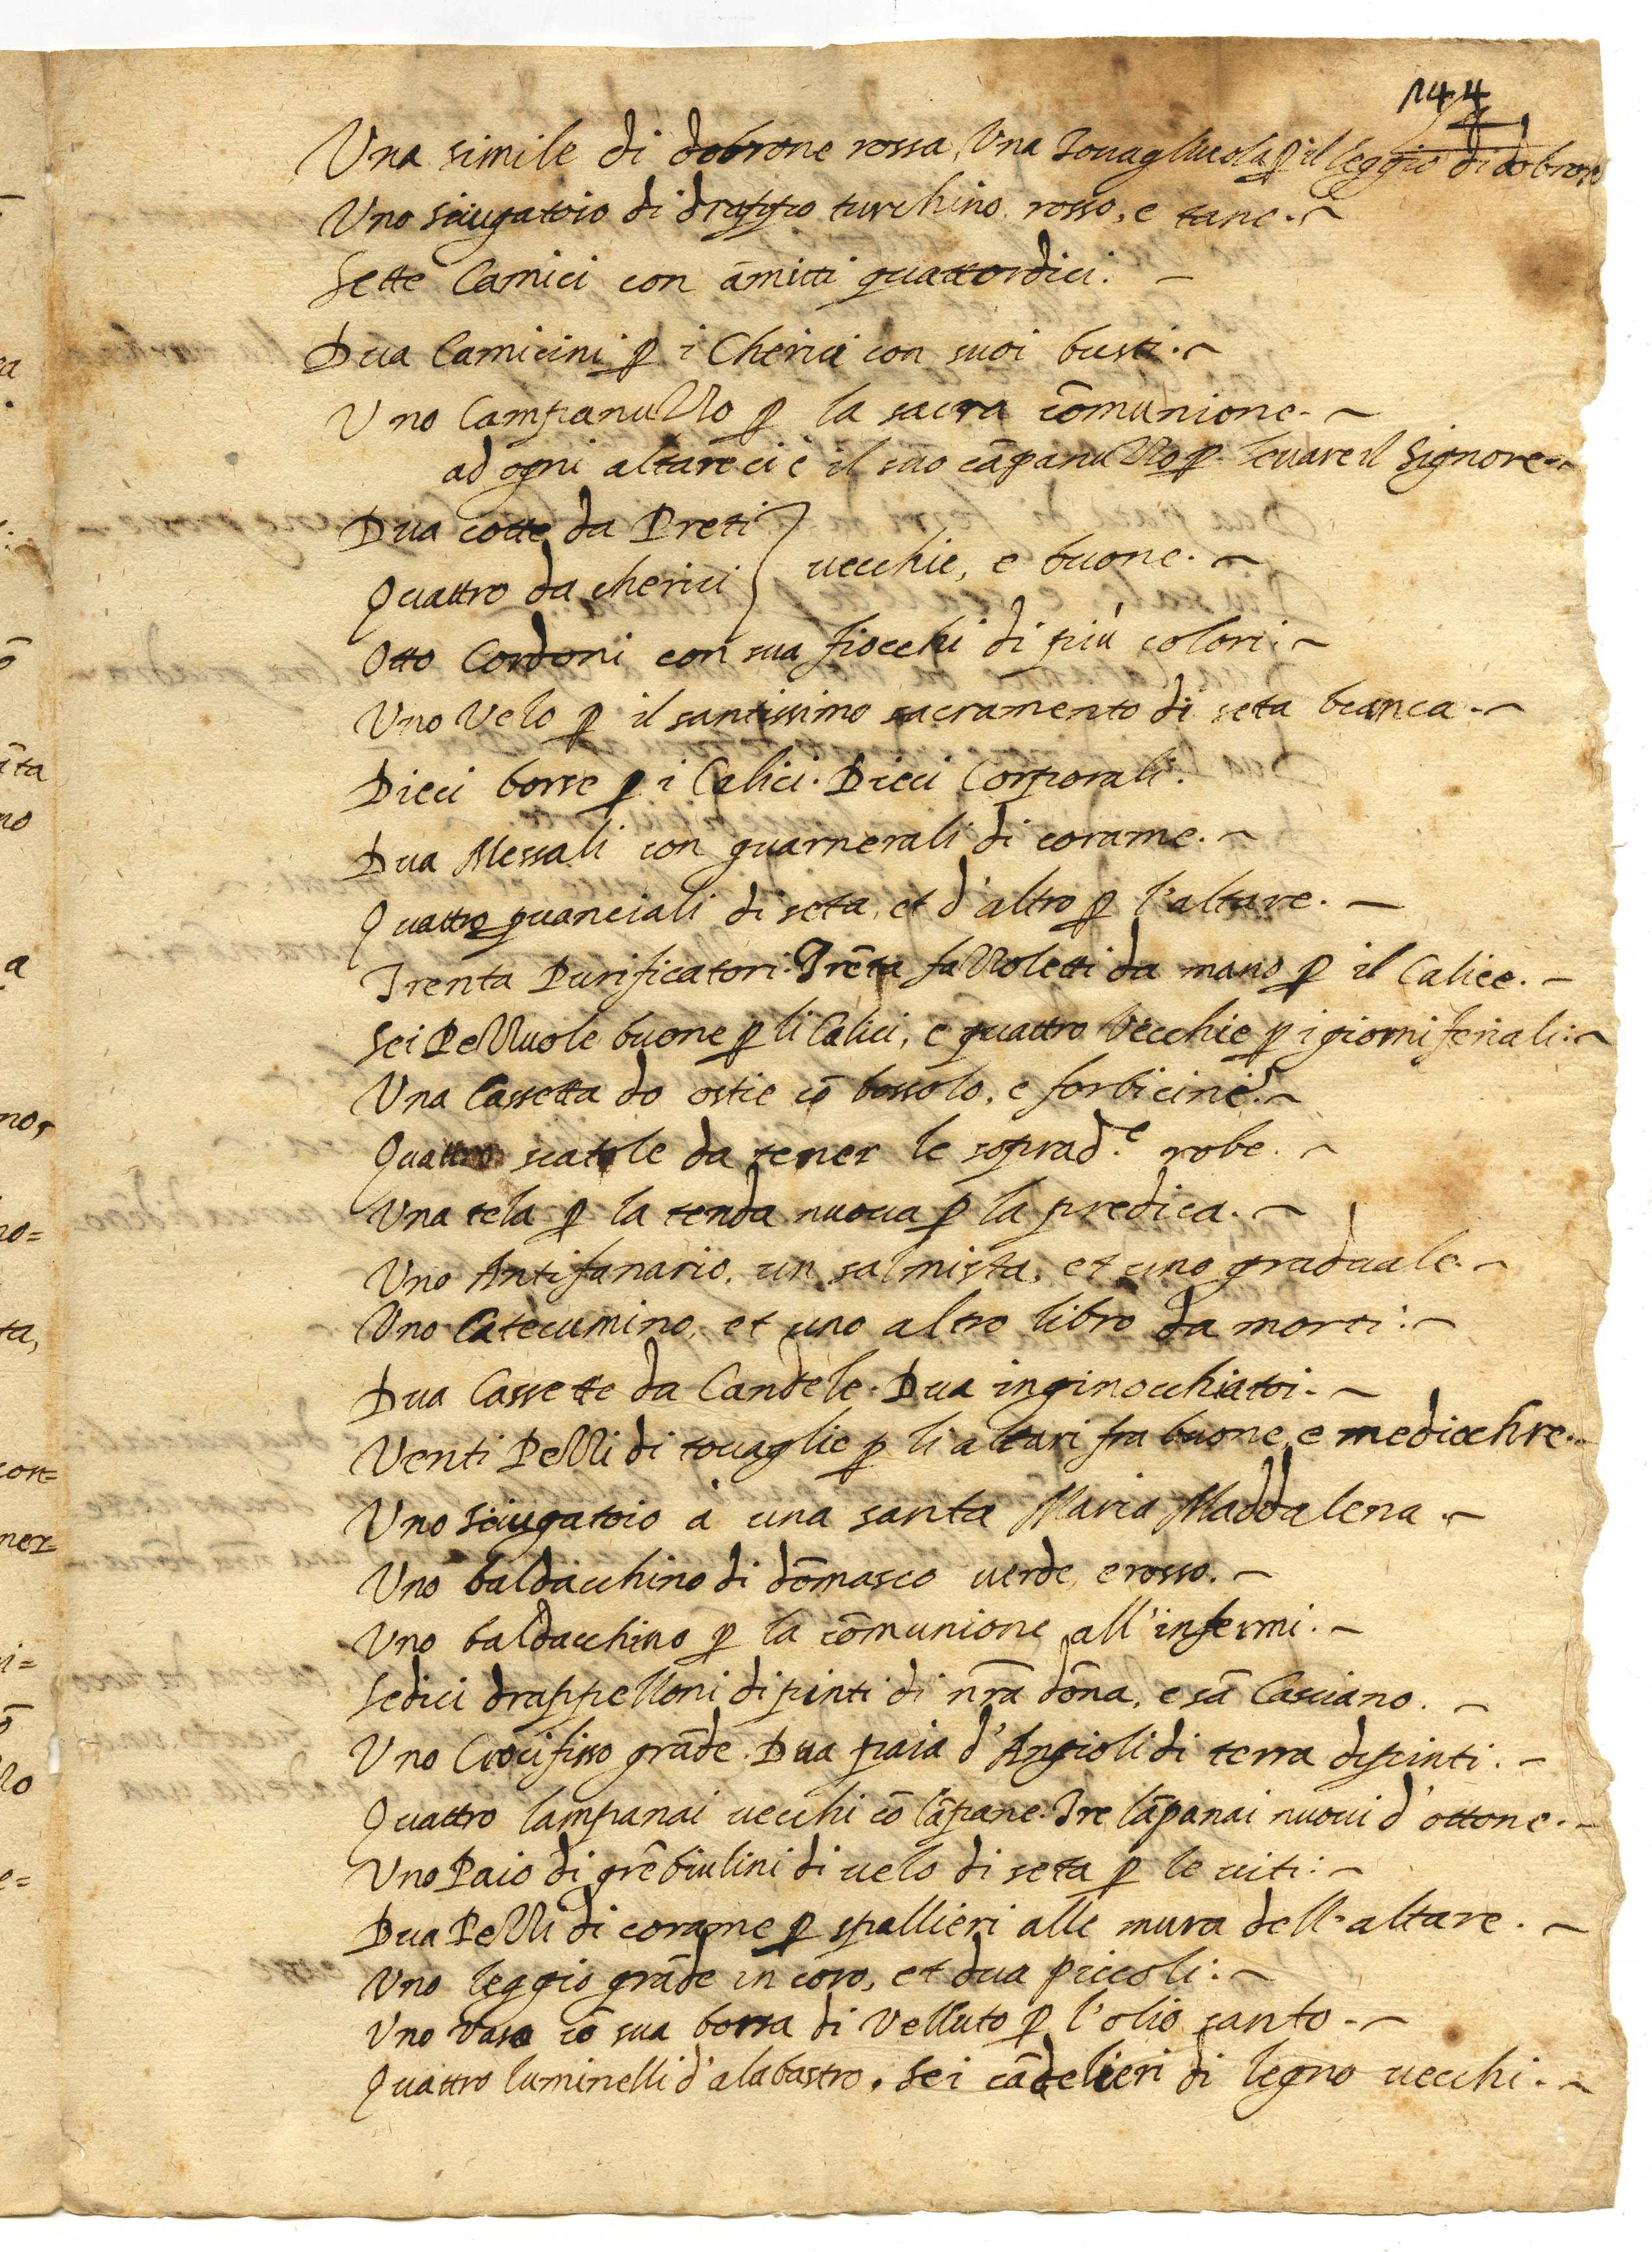 144
Una simile di dobrone rossa, Una Touagliuola ꝑ il leggio di dobrone
Uno sciugatoio di drappo turchino, rosso, e tane.
Sette Camici con āmitti quattordici.
Dua Camicini ꝑ i Cherici con suoi busti.
Uno Campanuzzo ꝑ la sacra cōmunione.
ad ogni altare ci è il suo cāpanuzzo ꝑ leuare il Signore
Dua cotte da Preti
Quattro da cherici } uecchie, e buone.
Otto Cordoni con sua fiocchi di più colori.
Uno Velo ꝑ il santissimo sacramento di seta bianca.
Dieci borse ꝑ i Calici. Dieci Corporali.
Dua Messali con guarnerali di corame.
Quattro guanciali di seta, et d'altro ꝑ l'altare.
Trenta Purificatori. Trēta fazzoletti da mano ꝑ il Calice.
Sei Pezzuole buone ꝑ li Calici, e quattro Vecchie ꝑ i giorni feriali:
Una Cassetta do ostie cō bossolo, e forbicine.
Quattro scatole da tener le soprad.e robe.
Una tela ꝑ la tenda nuoua ꝑ la predica.
Uno Antifanario, un salmista, et uno graduale.
Uno Catecumino, et uno altro libro da morti:
Dua Cassette da Candele. Dua inginocchiatoi.
Venti Pezzi di touaglie ꝑ li altari fra buone, e mediocchre.
Uno sciugatoio à una santa Maria Maddalena.
Uno baldacchino di dōmasco uerde, e rosso.
Uno baldacchino ꝑ la cōmunione all'infermi.
Sedici drappelloni dipinti di nr̄a dōna, e sā Casciano.
Uno Crocifisso grāde. Dua paia d'Angioli di terra depinti.
Quattro lampanai uecchi cō lāpane. Tre lāpanai nuoui d'ottone.
Uno Paio di grēbiulini di uelo di seta ꝑ le uiti:
Dua Pezzi di corame ꝑ spallieri alle mura dell'altare.
Uno leggio grāde in coro, et dua piccoli:
Uno Vaso cō sua borsa di Velluto ꝑ l'olio santo.
Quattro luminelli d'alabastro. Sei cādelieri di legno uecchi.